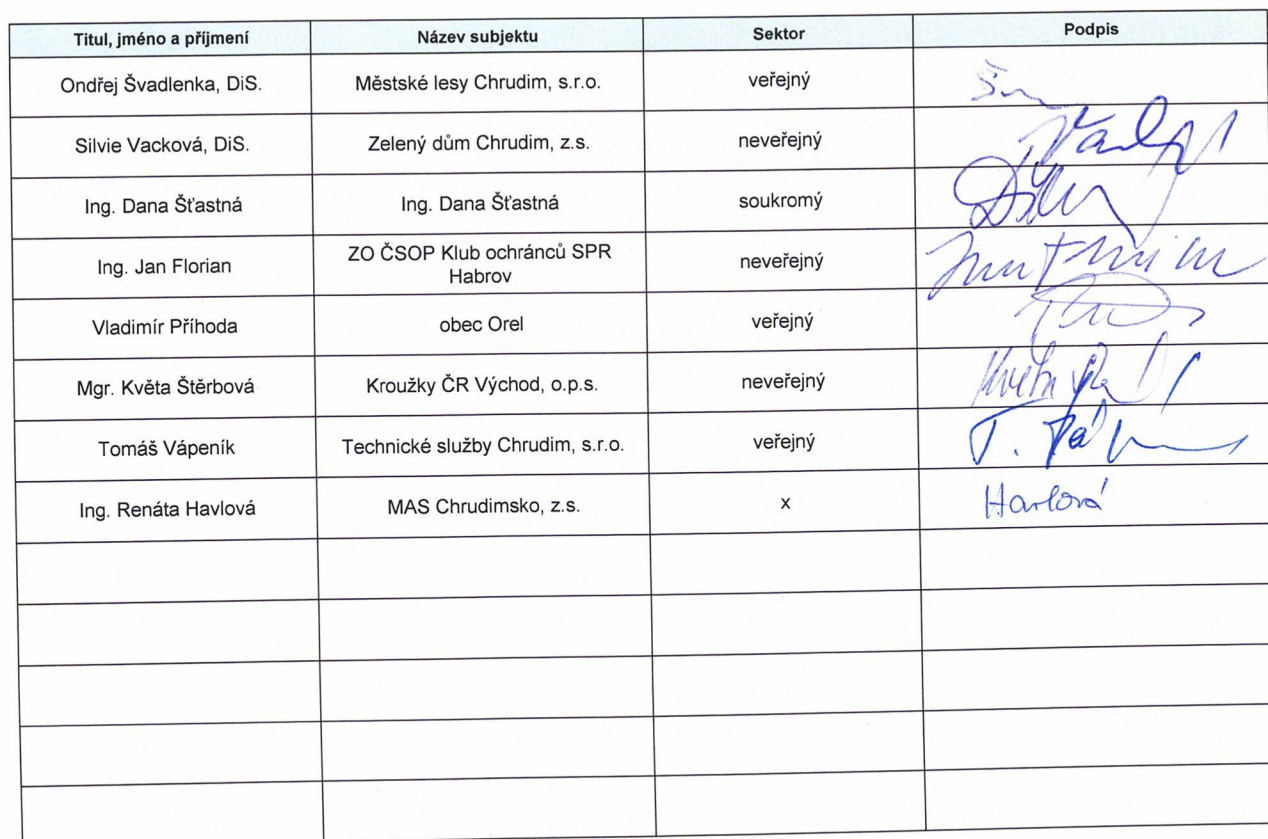 Titul, jméno a příjmení Název subjektu Sektor Podpis
Ondřej Švadlenka, DiS. Městské lesy Chrudim, s.r.o. veřejný
Silvie Vacková, DiS. Zelený dům Chrudim, z.s. neveřejný
Ing. Dana Šťastná Ing. Dana Šťastná soukromý
Ing. Jan Florian ZO ČSOP Klub ochránců SPR
Habrov neveřejný
Vladimír Příhoda obec Orel veřejný
Mgr. Květa Štěrbová Kroužky ČR Východ, o.p.s. neveřejný
Tomáš Vápeník Technické služby Chrudim, s.r.o. veřejný
Ing. Renáta Havlová MAS Chrudimsko, z.s. x Havlová